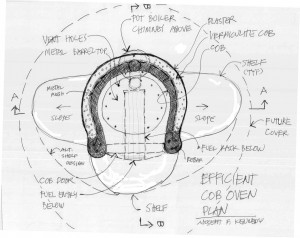 B
POT BOILER
CHIMNEY ABOVE
PLASTER
VERMICULITE COB
COB
VENT HOLES
METAL BARREL TOP
SHELF
(TYP)
METAL
MESH
A
A
SLOPE
SLOPE
FUTURE
COVER
ASH
SHELF
FUEL RACK BELOW
REBAR
COB DOOR
FUEL ENTRY
BELOW
SHELF
B
EFFICIENT
COB OVEN
PLAN
KENNEDY